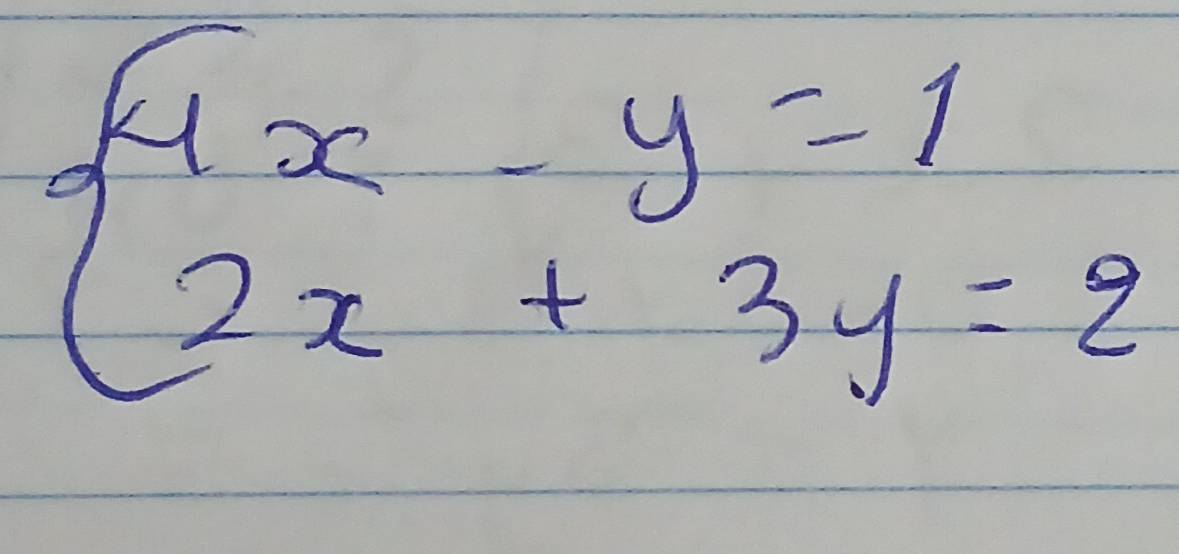 4x - y = 1
2x + 3y = 2